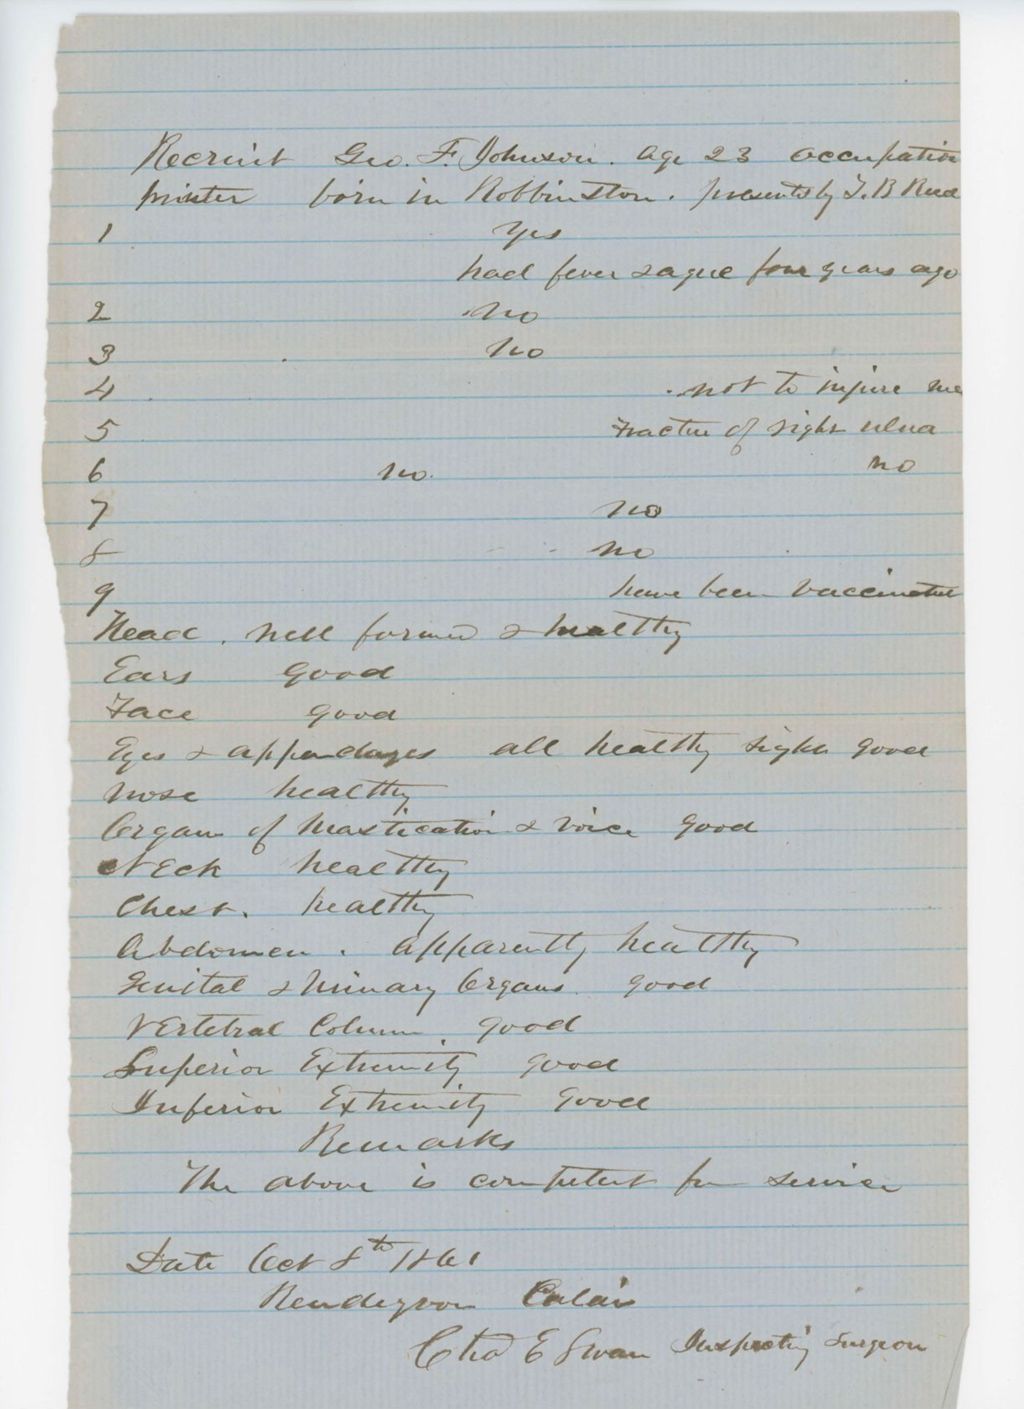 Recruit Geo. F. Johnson. age 23 occupation
printer born in Robbinston. presented by T. B Reed
1 Yes
had fever & ague four years ago
2 No
3 No
4 not to injure me
5 Fracture of right ulna
6 no. no
7 No
8 no
9 have been vaccinated
Head. well formed & healthy
Ears Good
Face Good
Eyes & appendages all healthy sight good
Nose healthy
Organs of Mastication & Voice Good
Neck healthy
Chest. healthy
Abdomen. apparently healthy
Genital & Urinary Organs. Good
Vertebral Column. Good
Superior Extremity Good
Inferior Extremity Good
Remarks
The above is competent for service
Date Oct 8th 1861
Rendezvous Calais
Chas E Swan Inspecting Surgeon